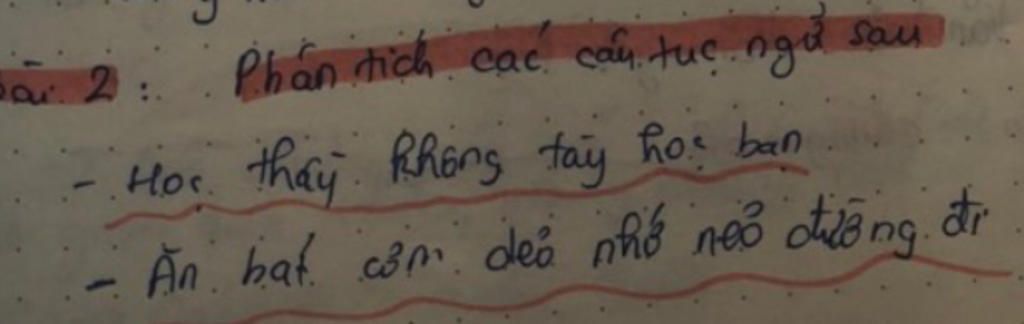 bài 2: Phân tích các câu tục ngữ sau
- Học thầy không tày học bạn
- Ăn bát cơm dẻo nhớ nẻo đường đi